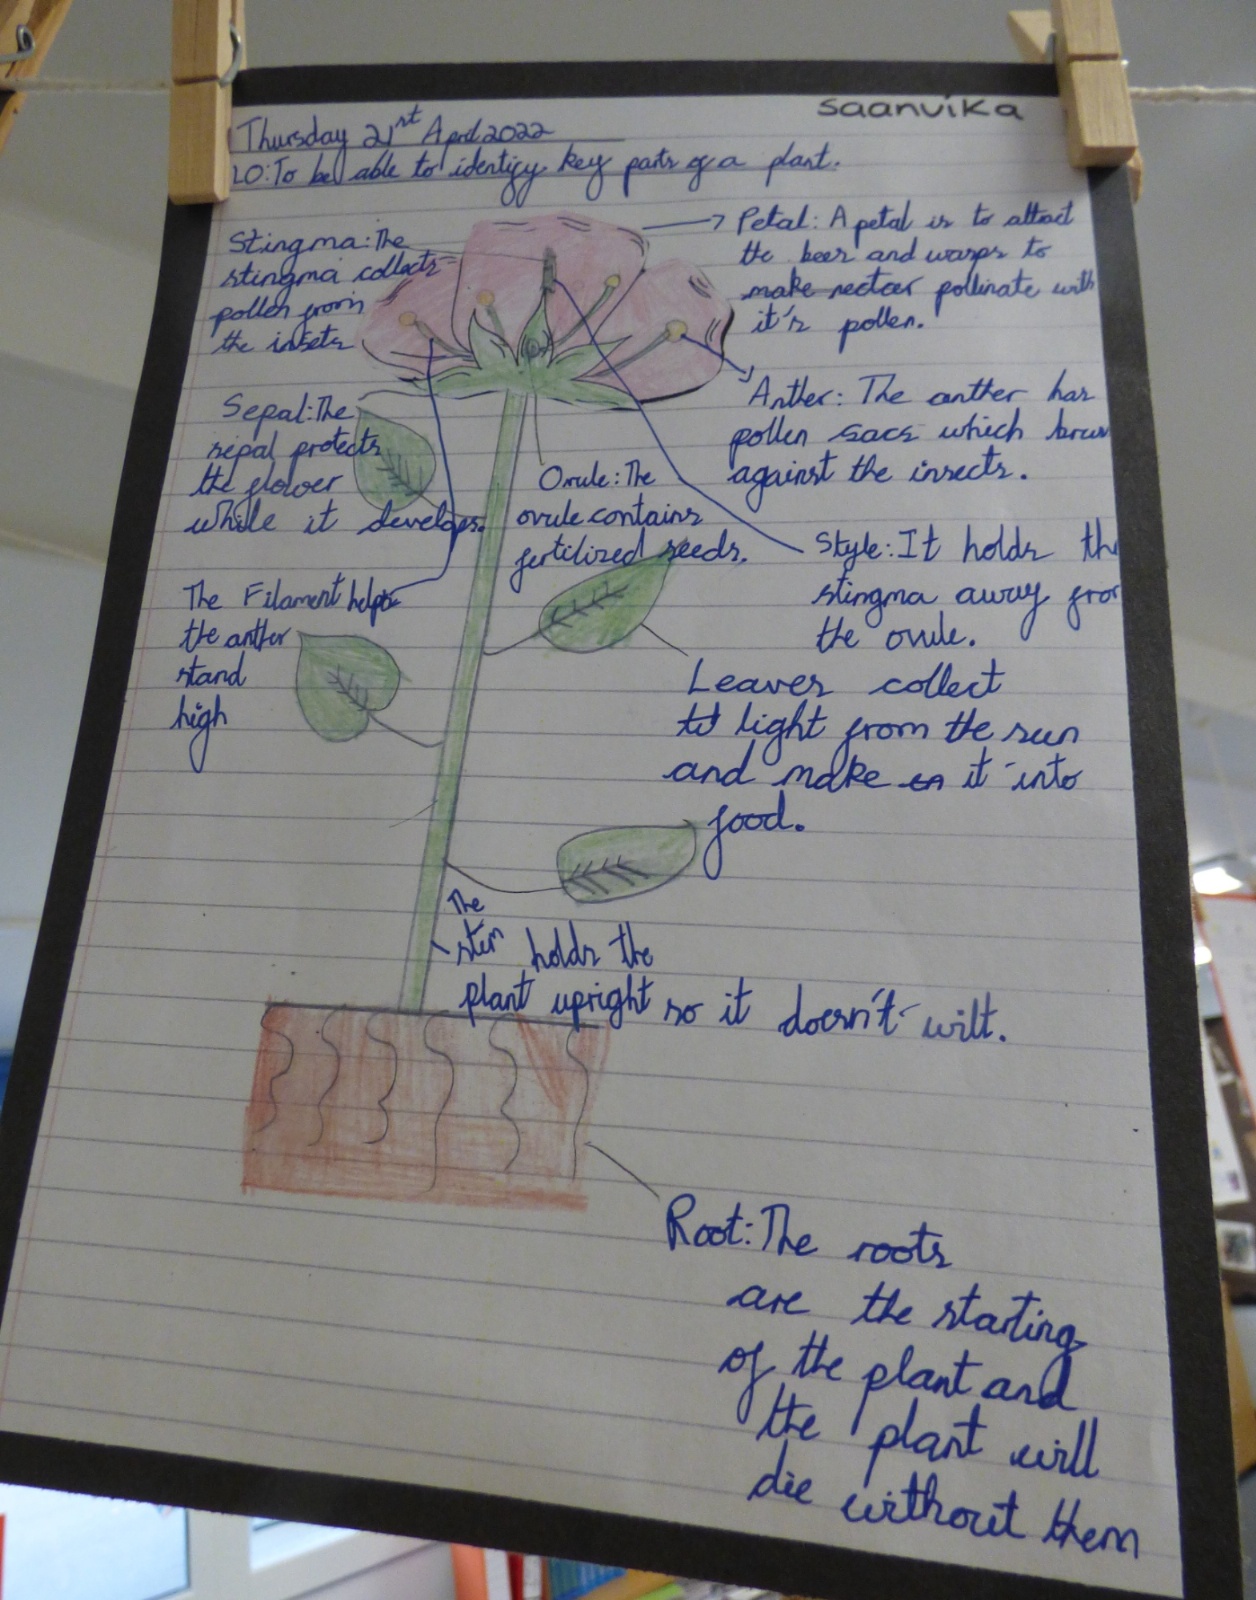 saanvika
Thursday 21st April 2022
LO: To be able to identify key parts of a plant.
Stingma: The
stingma collects
pollen from
the insets
Petal: A petal is to attract
the bees and wasps to
make nectar pollinate with
it's pollen.
Anther: The anther has
pollen sacs which
against the insects.
Sepal: The
sepal protects
the flower
while it develops.
Ovule: The
ovule contains
fertilized seeds.
Style: It holds the
stingma away from
the ovule.
The Filament helps
the anther
stand
high
Leaves collect
light from the sun
and make it into
food.
The
stem holds the
plant upright so it doesn't wilt.
Root: The roots
are the starting
of the plant and
the plant will
die without them